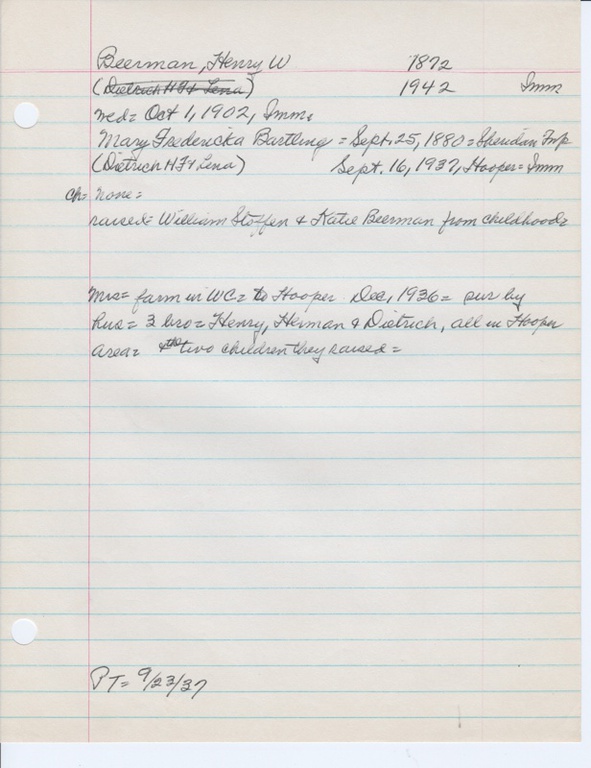 Beerman, Henry W 1872
(Dietrich H F & Lena) 1942 Imm
wed= Oct 1, 1902, Imm.
Mary Fredericka Bartling = Sept. 25, 1880 = Sheridan Twp
(Dietrich H F & Lena) Sept. 16, 1937, Hooper = Imm
ch= none=
raised= William Stoffen & Katie Beerman from childhood=
Mrs= farm in WC= to Hooper Dec, 1936 = sur by
hus= 3 bro= Henry, Herman & Dietrich, all in Hooper
area= & the two children they raised =
PT= 9/23/37